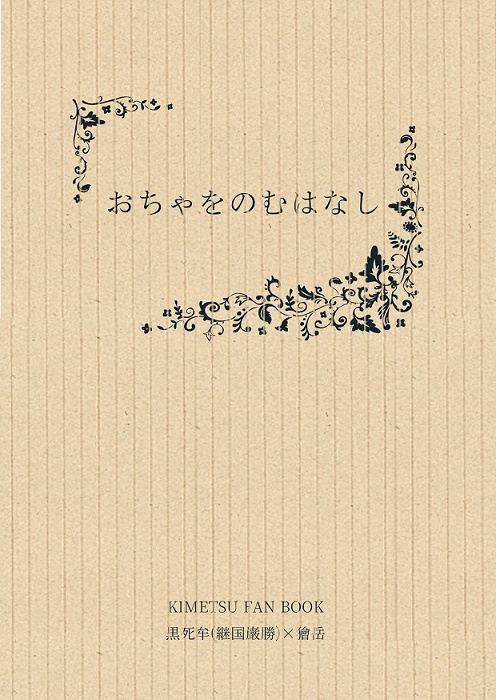 おちゃをのむはなし
KIMETSU FAN BOOK
黒死牟(継国巌勝)×獪岳